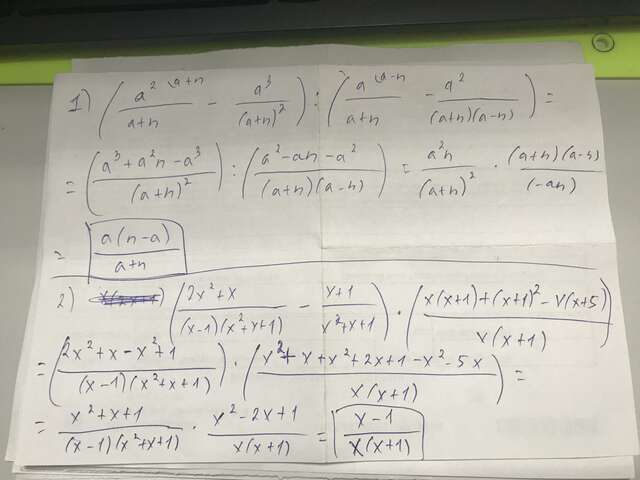 1) (a² \a+n / a+n - a³ / (a+n)²) : (a \a-n / a+n - a² / (a+n)(a-n)) =
= (a³+a²n-a³ / (a+n)²) : (a²-an-a² / (a+n)(a-n)) = a²n / (a+n)² · (a+n)(a-n) / (-an)
= a(n-a) / a+n
2) (2x²+x / (x-1)(x²+x+1) - x+1 / x²+x+1) · (x(x+1)+(x+1)²-x(x+5) / x(x+1))
= (2x²+x-x²+1 / (x-1)(x²+x+1)) · (x²+x+x²+2x+1-x²-5x / x(x+1)) =
= x²+x+1 / (x-1)(x²+x+1) · x²-2x+1 / x(x+1) = x-1 / x(x+1)